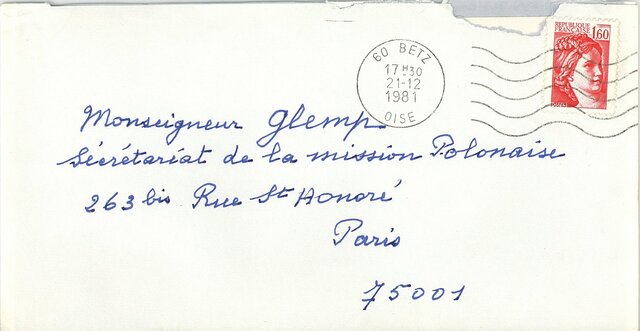 60 BETZ
17H30
21-12
1981
OISE
REPUBLIQUE
FRANÇAISE
1,60
Monseigneur Glemp
Sécrétariat de la mission Polonaise
263 bis Rue St Honoré
Paris
75001